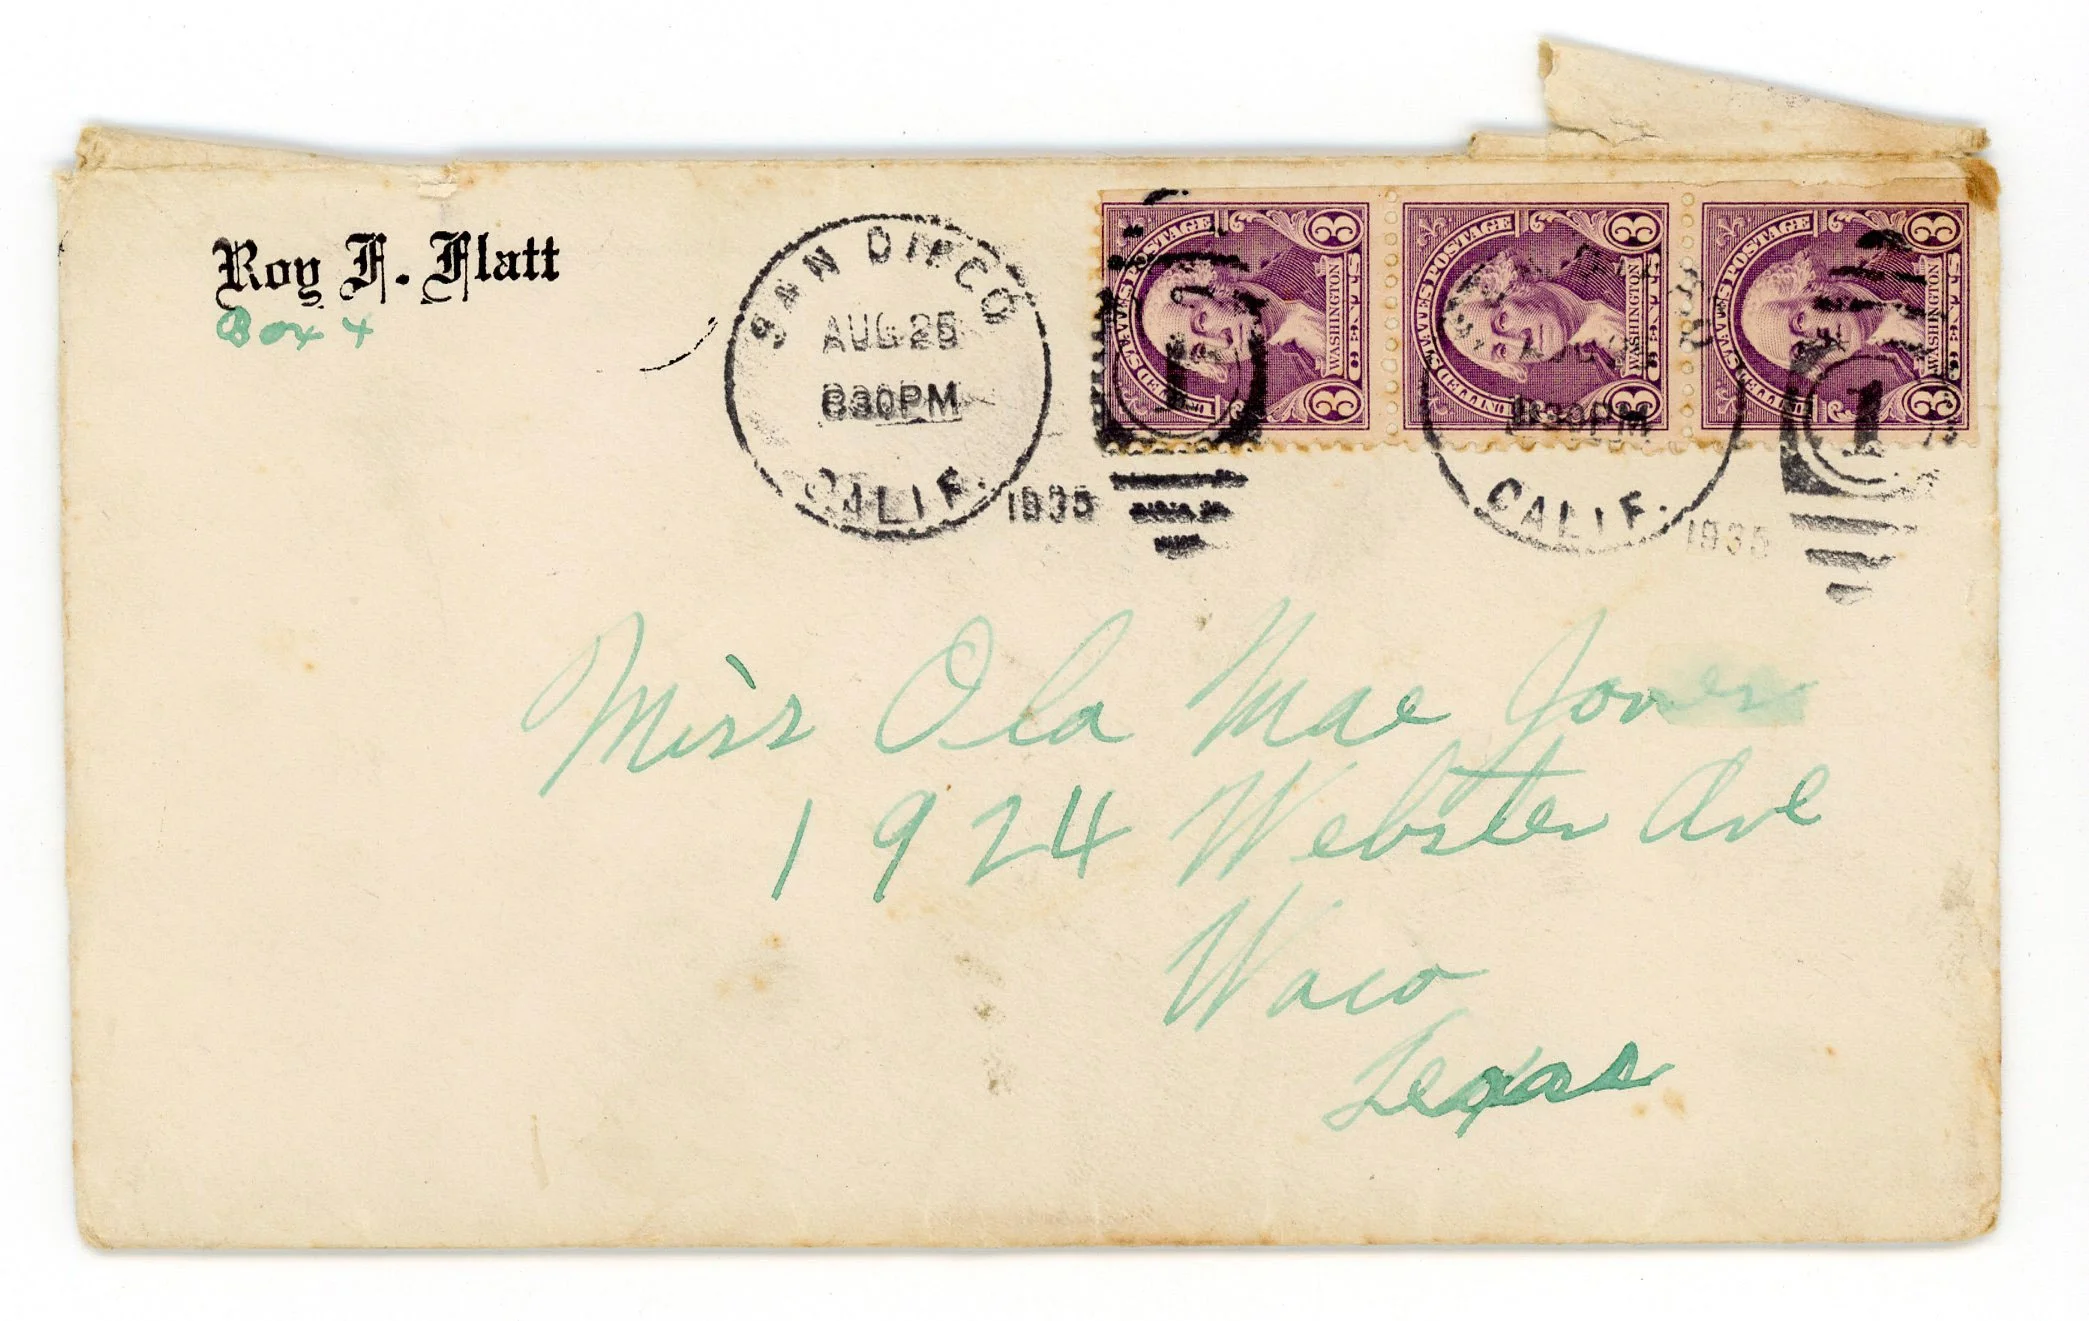 Roy F. Flatt
Box 4
SAN DIEGO
AUG 26
830PM
CALIF.
1935
UNITED STATES POSTAGE
WASHINGTON
3 CENTS 3
UNITED STATES POSTAGE
WASHINGTON
3 CENTS 3
UNITED STATES POSTAGE
WASHINGTON
3 CENTS 3
830PM
CALIF.
1935
1
Miss Ola Mae Jones
1924 Webster Ave
Waco
Texas